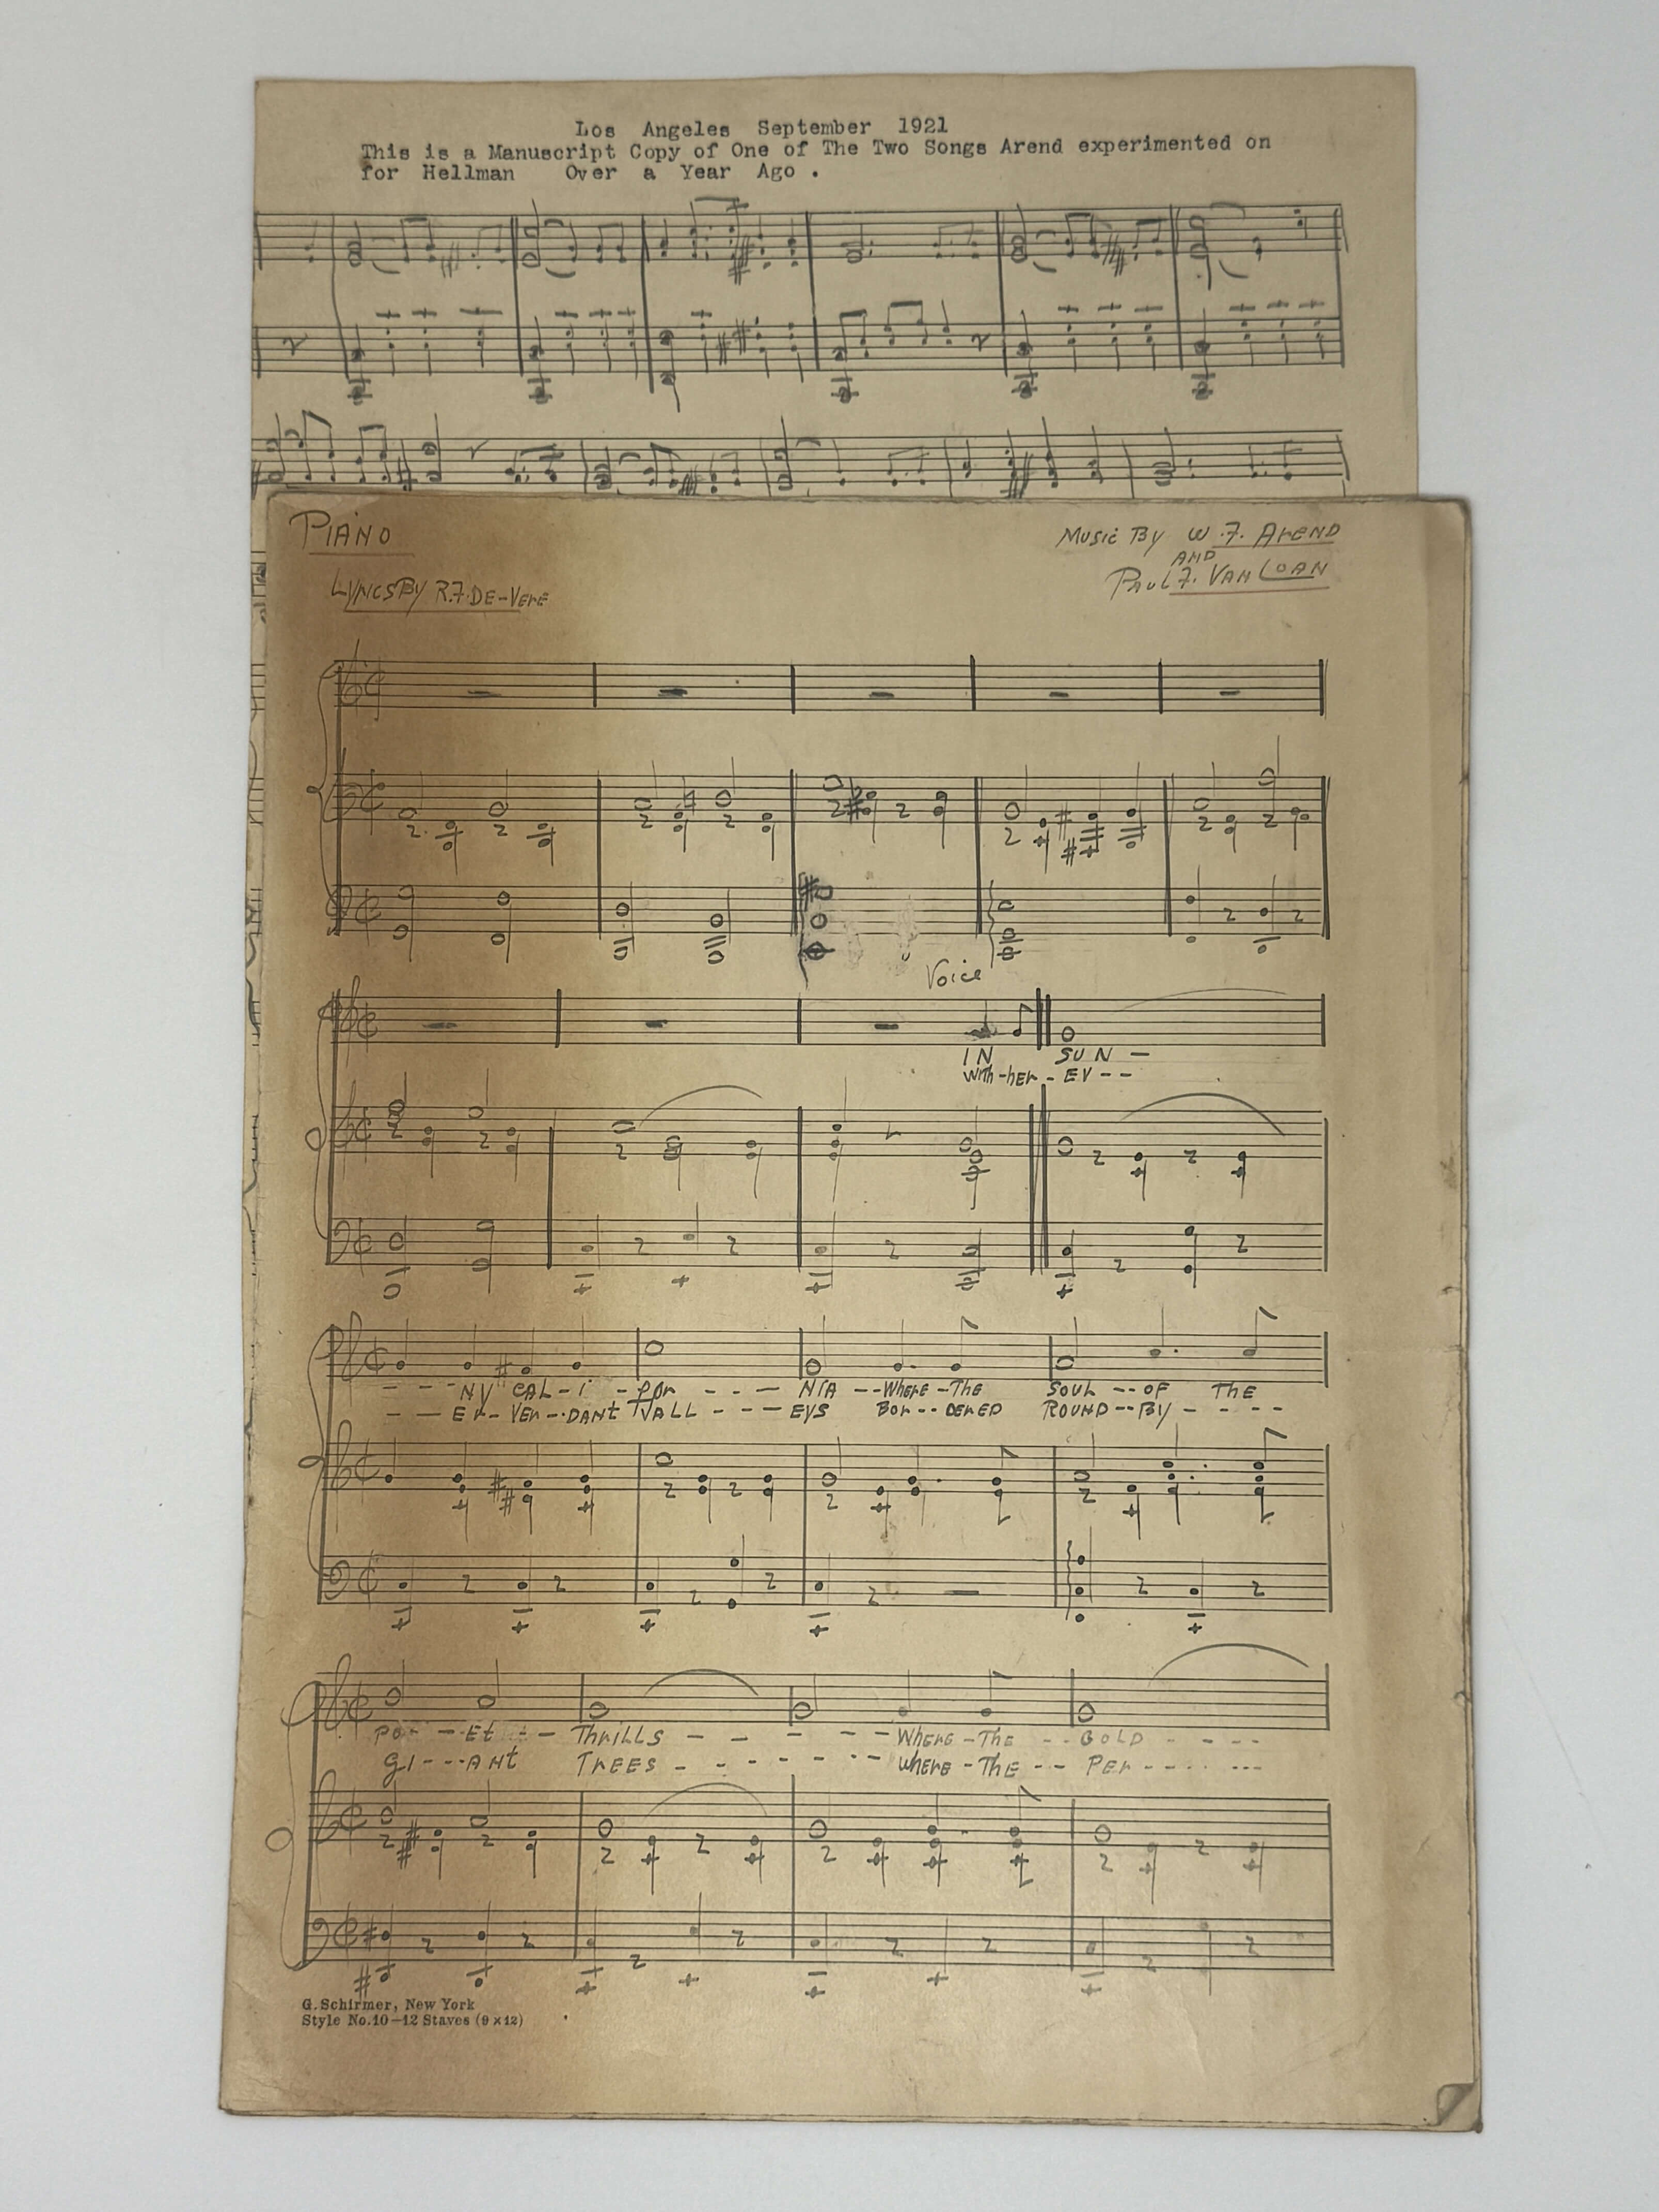 Los Angeles September 1921
This is a Manuscript Copy of One of The Two Songs Arend experimented on
for Hellman Over a Year Ago .
PIANO
Music By W.F. Arend
AND
Paul F. Van Loan
Lyrics By R.F. De-Vere
Voice
IN SUN -
With-her - EV - -
- - - NY CAL - i - for - - - NIA -- Where - The SOUL -- OF THE
- - Er - Ver -- DANT VALL - - - EYS Bor -- DERED ROUND -- By - - - -
Po - - Et - - Thrills - - - - - Where - The - - GOLD - - - -
Gi - - - ANT TREES - - - - - - - Where - The - - Per - - - - - - -
G. Schirmer, New York
Style No.10—12 Staves (9 x 12)